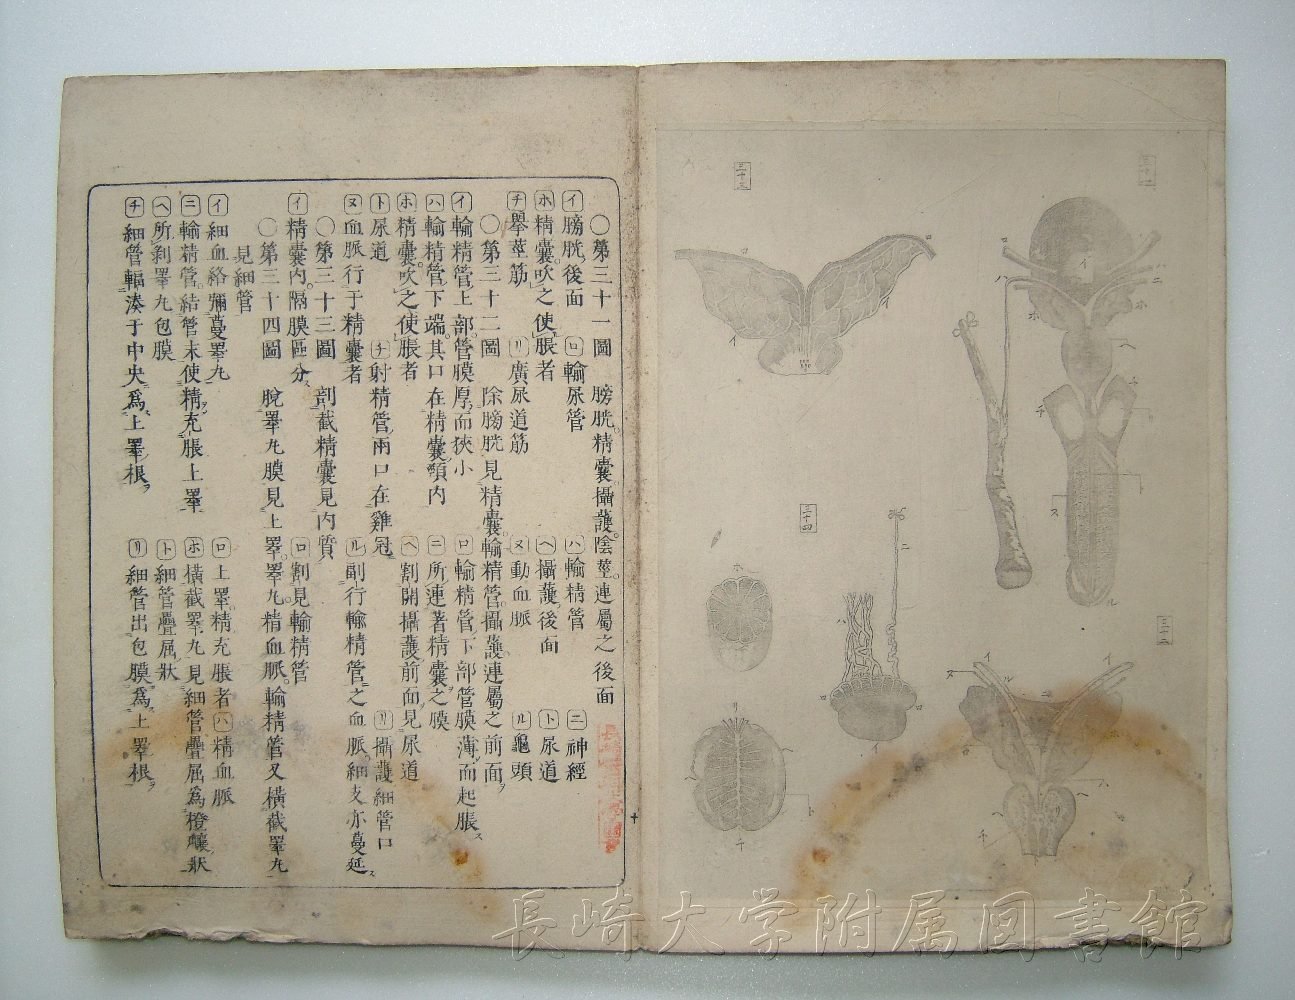 〇第三十一圖 膀胱精囊攝護陰莖連屬之後面
イ膀胱後面 ロ輸尿管 ハ輸精管 ニ神經
ホ精囊吹之使脹者 ヘ攝護後面 ト尿道
チ擧莖筋 リ廣尿道筋 ヌ動血脈 ル龜頭
〇第三十二圖 除膀胱見精囊輸精管攝護連屬之前面
イ輸精管上部管膜厚而狹小 ロ輸精管下部管膜薄而起脹
ハ輸精管下端其口在精囊頸内 ニ所連著精囊之膜
ホ精囊吹之使脹者 ヘ割開攝護前面見尿道
ト尿道 チ射精管兩口在雞冠 リ攝護細管口
ヌ血脈行于精囊者 ル副行輸精管之血脈細支亦蔓延
〇第三十三圖 剖截精囊見内質
イ精囊内隔膜區分 ロ割見輸精管
〇第三十四圖 脫睪丸膜見上睪睪丸精血脈輸精管又橫截睪丸
見細管
イ細血絡彌蔓睪丸 ロ上睪精充脹者 ハ精血脈
ニ輸精管結管末使精充脹上睪 ホ橫截睪丸見細管疊屈為橙瓤狀
ヘ所剥睪丸包膜 ト細管疊屈狀
チ細管輻湊于中央為上睪根 リ細管出包膜為上睪根
十
三十一
三十二
三十三
三十四
長崎大学附属図書館